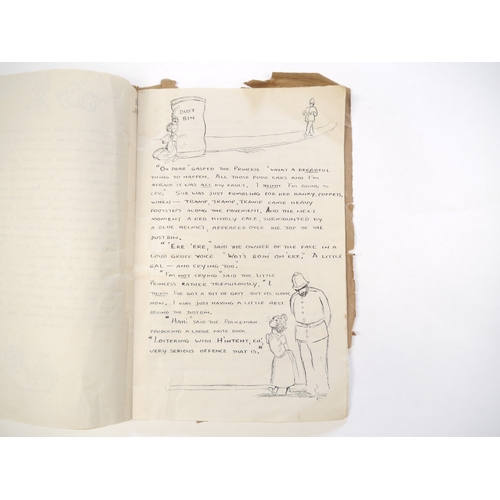 DUST
BIN
"OH DEAR" GASPED THE PRINCESS "WHAT A DREADFUL
THING TO HAPPEN. ALL THOSE POOR CARS AND I'M
AFRAID IT WAS ALL MY FAULT. I THINK I'M GOING TO
CRY." SHE WAS JUST FUMBLING FOR HER HANKY, POPPETS,
WHEN — TRAMP, TRAMP, TRAMP CAME HEAVY
FOOTSTEPS ALONG THE PAVEMENT, AND THE NEXT
MOMENT A RED KINDLY FACE, SURMOUNTED BY
A BLUE HELMET, APPEARED OVER THE TOP OF THE
DUSTBIN.
"'ERE 'ERE," SAID THE OWNER OF THE FACE IN A
LOUD GRUFF VOICE "WOT'S GOIN ON ERE." A LITTLE
GAL — AND CRYING TOO.
"I'M NOT CRYING" SAID THE LITTLE
PRINCESS RATHER TREMULOUSLY, "I
THINK I'VE GOT A BIT OF GRIT BUT ITS GONE
NOW. I WAS JUST HAVING A LITTLE REST
BEHIND THE DUSTBIN."
"HAH." SAID THE POLICEMAN
PRODUCING A LARGE NOTE BOOK
"LOITERING WITH H'INTENT, EH,
VERY SERIOUS OFFENCE THAT IS."